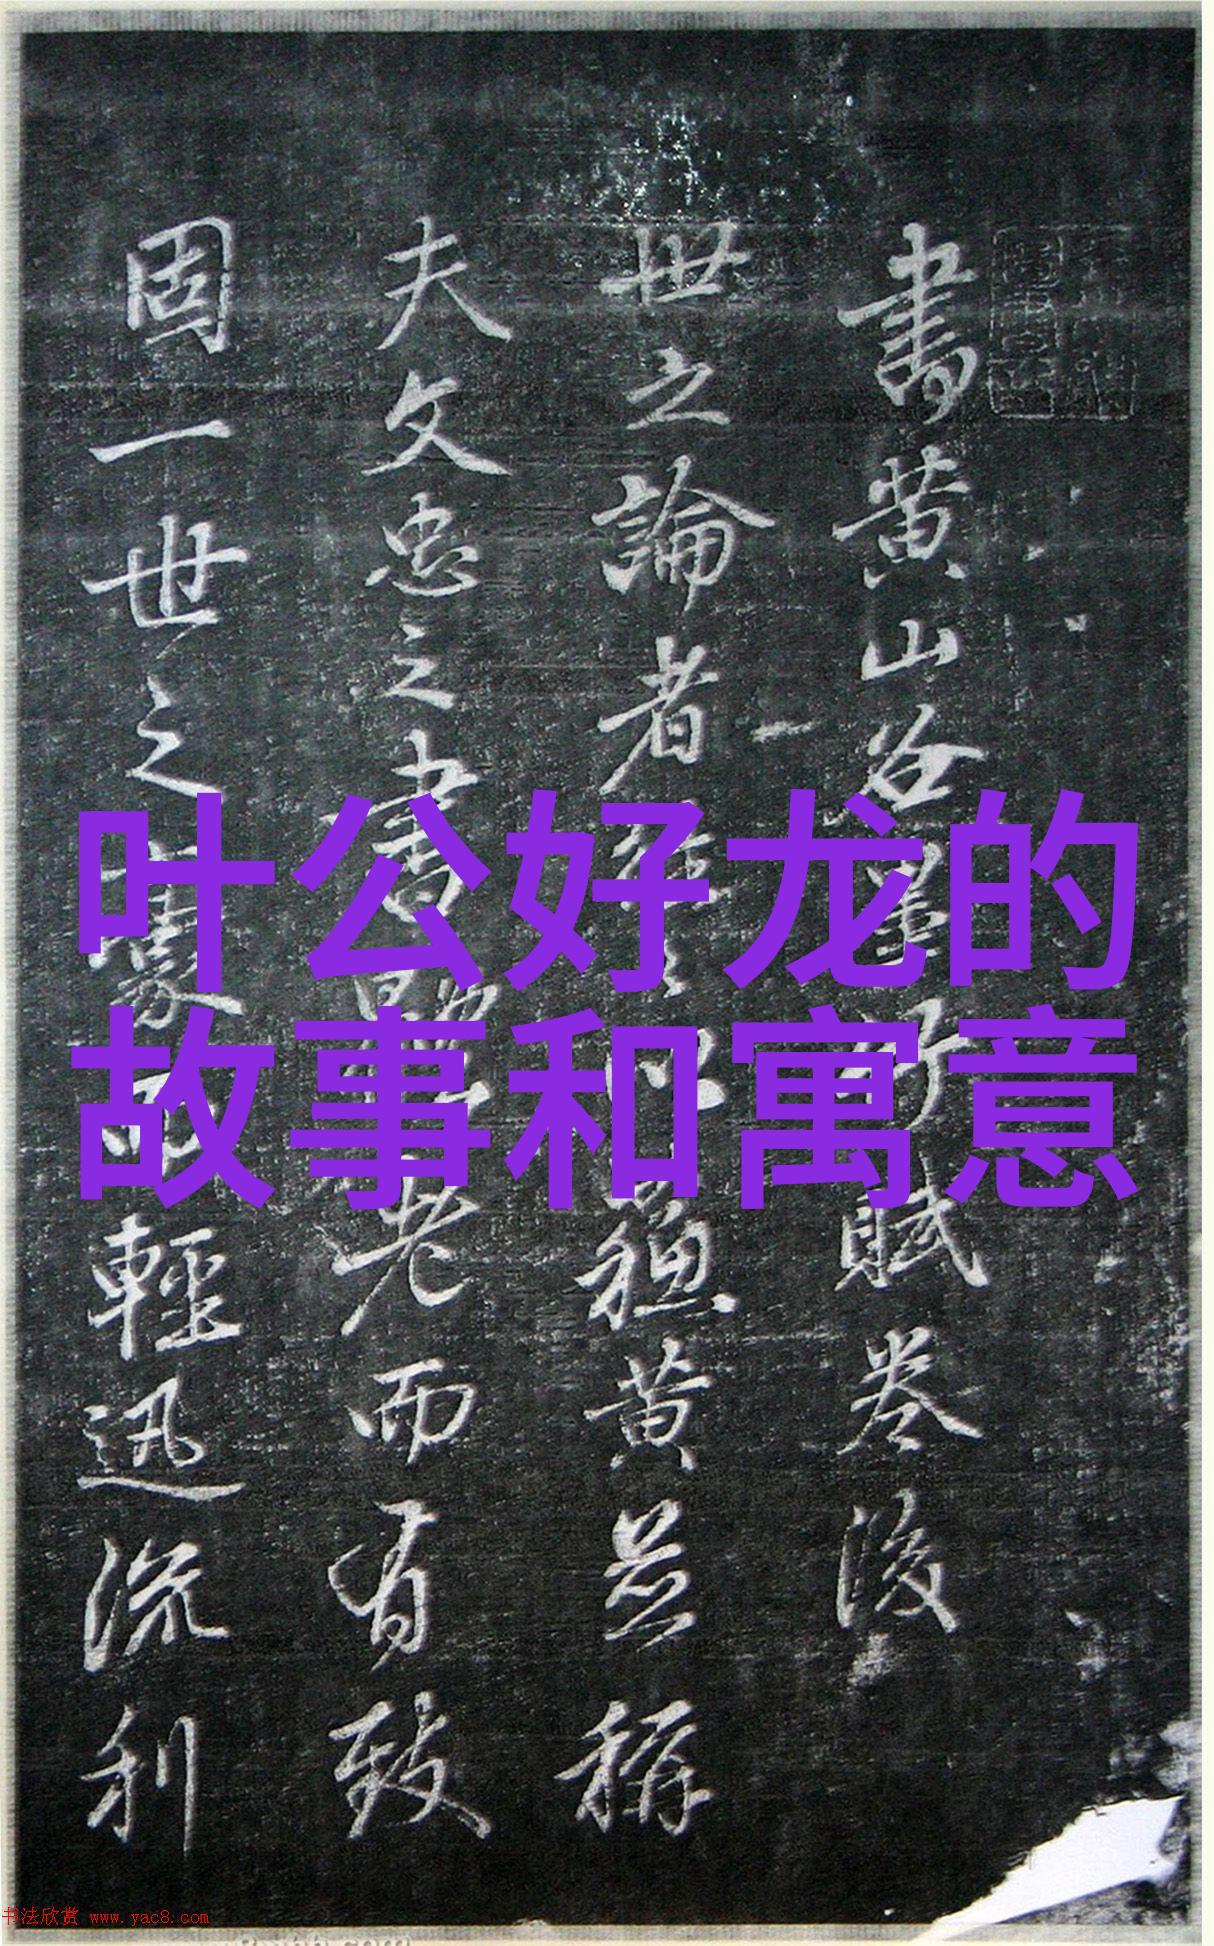 叶公好龙的
故事和寓意
書黄山谷賦卷後
世之論者以黄並稱
夫文忠之書老而有致
固一世之豪而輕迅流利
书法欣赏 www.yac8.com